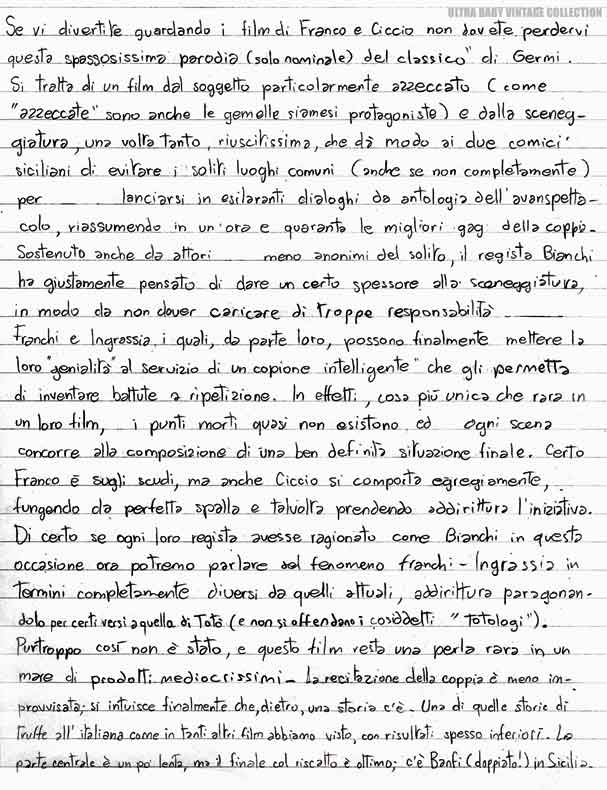 ULTRA BABY VINTAGE COLLECTION
Se vi divertite guardando i film di Franco e Ciccio non dovete perdervi
questa spassosissima parodia (solo nominale) del classico" di Germi.
Si tratta di un film dal soggetto particolarmente azzeccato (come
"azzeccate" sono anche le gemelle siamesi protagoniste) e dalla sceneg-
giatura, una volta tanto, riuscitissima, che dà modo ai due comici
siciliani di evitare i soliti luoghi comuni (anche se non completamente)
per lanciarsi in esilaranti dialoghi da antologia dell'avanspetta-
colo, riassumendo in un'ora e quaranta le migliori gag della coppia.
Sostenuto anche da attori meno anonimi del solito, il regista Bianchi
ha giustamente pensato di dare un certo spessore alla sceneggiatura,
in modo da non dover caricare di troppe responsabilità
Franchi e Ingrassia, i quali, da parte loro, possono finalmente mettere la
loro "genialità" al servizio di un copione intelligente" che gli permetta
di inventare battute a ripetizione. In effetti, cosa più unica che rara in
un loro film, i punti morti quasi non esistono ed ogni scena
concorre alla composizione di una ben definita situazione finale. Certo
Franco è sugli scudi, ma anche Ciccio si comporta egregiamente,
fungendo da perfetta spalla e talvolta prendendo addirittura l'iniziativa.
Di certo se ogni loro regista avesse ragionato come Bianchi in questa
occasione ora potremo parlare del fenomeno franchi-Ingrassia in
termini completamente diversi da quelli attuali, addirittura paragonan-
dolo per certi versi a quella di Totò (e non si offendano i cosiddetti "Totologi").
Purtroppo così non è stato, e questo film resta una perla rara in un
mare di prodotti mediocrissimi- La recitazione della coppia è meno im-
provvisata; si intuisce finalmente che, dietro, una storia c'è. Una di quelle storie di
truffe all'italiana come in tanti altri film abbiamo visto, con risultati spesso inferiori. La
parte centrale è un po' lenta, ma il finale col riscatto è ottimo; c'è Banfi (doppiato!) in Sicilia.